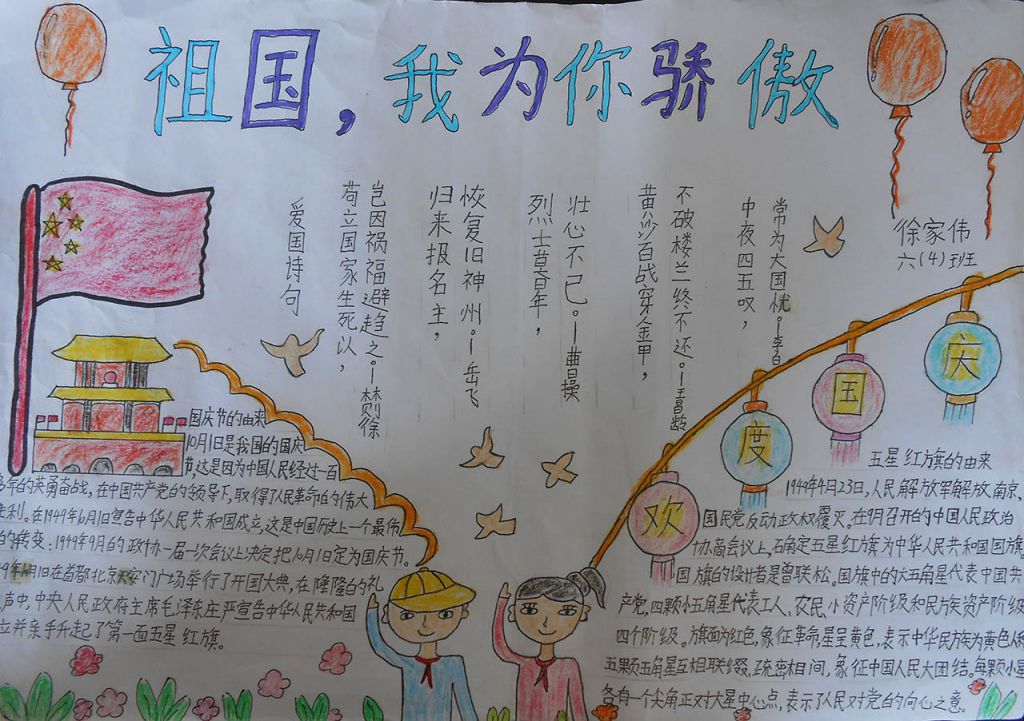 祖国，我为你骄傲
徐家伟
六(4)班
爱国诗句
苟立国家生死以，
岂因祸福避趋之。—林则徐
归来报名主，
恢复旧神州。—岳飞
烈士暮年，
壮心不已。—曹操
黄沙百战穿金甲，
不破楼兰终不还。—王昌龄
中夜四五叹，
常为大国忧。—李白
欢度国庆
国庆节的由来
10月1日是我国的国庆
节，这是因为中国人民经过一百
多年的英勇奋战，在中国共产党的领导下，取得了人民革命的伟大
胜利。在1949年6月1日宣告中华人民共和国成立，这是中国历史上一个最伟
的转变。1949年9月的政协一届一次会议上决定把10月1日定为国庆节。
月1日在首都北京天安门广场举行了开国大典，在隆隆的礼
声中，中央人民政府主席毛泽东庄严宣告中华人民共和国
立并亲手升起了第一面五星红旗。
五星红旗的由来
1949年4月23日，人民解放军解放南京，
国民党反动政权覆灭。在9月召开的中国人民政治
协商会议上，确定五星红旗为中华人民共和国国旗
国旗的设计者是曾联松。国旗中的大五角星代表中国共
产党，四颗小五角星代表工人、农民、小资产阶级和民族资产阶级
四个阶级。旗面为红色，象征革命，星呈黄色，表示中华民族为黄色人种
五颗五角星互相联缀、疏密相间，象征中国人民大团结。每颗小星
各有一个尖角正对大星中心点，表示了人民对党的向心之意。